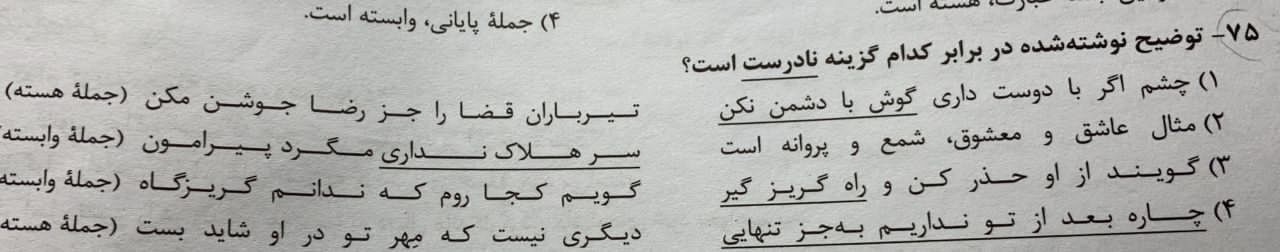 ۴) جملهٔ پایانی، وابسته است.
هسته است.
۷۵- توضیح نوشته‌شده در برابر کدام گزینه نادرست است؟
۱) چشم اگر با دوست داری گوش با دشمن نکن تیرباران قضا را جز رضا جوشن مکن (جملهٔ هسته)
۲) مثال عاشق و معشوق، شمع و پروانه است سر هلاک نداری مگرد پیرامون (جملهٔ وابسته
۳) گویند از او حذر کن و راه گریز گیر گویم کجا روم که ندانم گریزگاه (جملهٔ وابسته
۴) چاره بعد از تو نداریم به‌جز تنهایی دیگری نیست که مِهر تو در او شاید بست (جملهٔ هسته